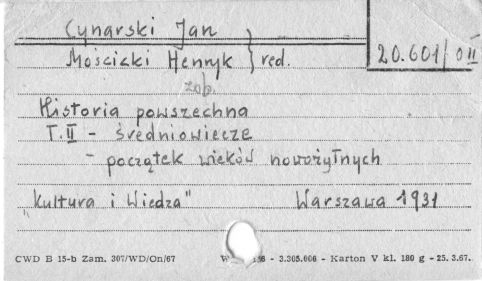 Cynarski Jan
Mościcki Henryk } red.
20.601/O II
zob.
Historia powszechna
T.II - średniowiecze
- początek wieków nowożytnych
"Kultura i Wiedza" Warszawa 1931
CWD B 15-b Zam. 307/WD/On/67 - 3.305.006 - Karton V kl. 180 g - 25.3.67.